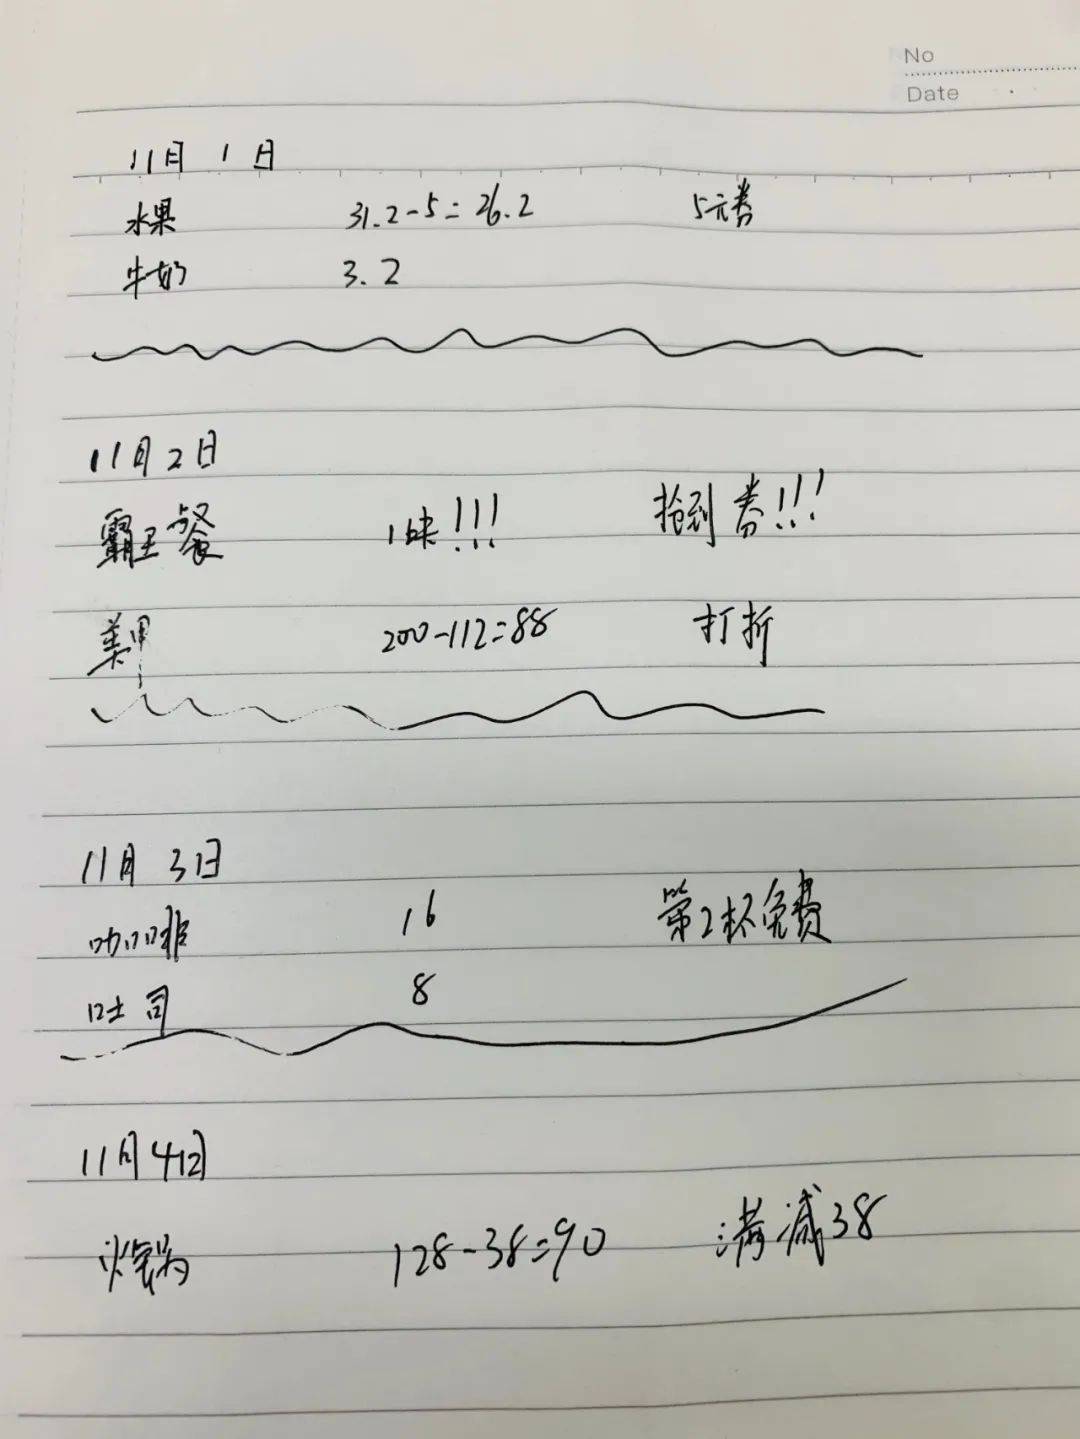 No
Date
11月1日
水果 31.2-5=26.2 5元券
牛奶 3.2
11月2日
霸王餐 1块!!! 抢到券!!!
美甲 200-112=88 打折
11月3日
咖啡 16 第2杯免费
吐司 8
11月4日
火锅 128-38=90 满减38